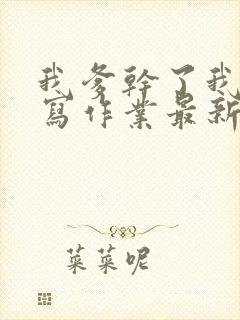 我爹幹了我
寫作業最新
菜菜呢